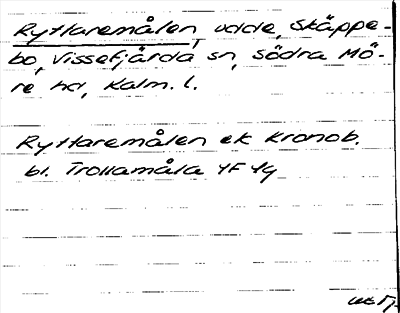 Ryttaremålen, udde, Skäppe-
bo, Vissefjärda sn, Södra Mö-
re hd, Kalm. l.
Ryttaremålen ek Kronob.
bl. Trollamåla 4F 4g